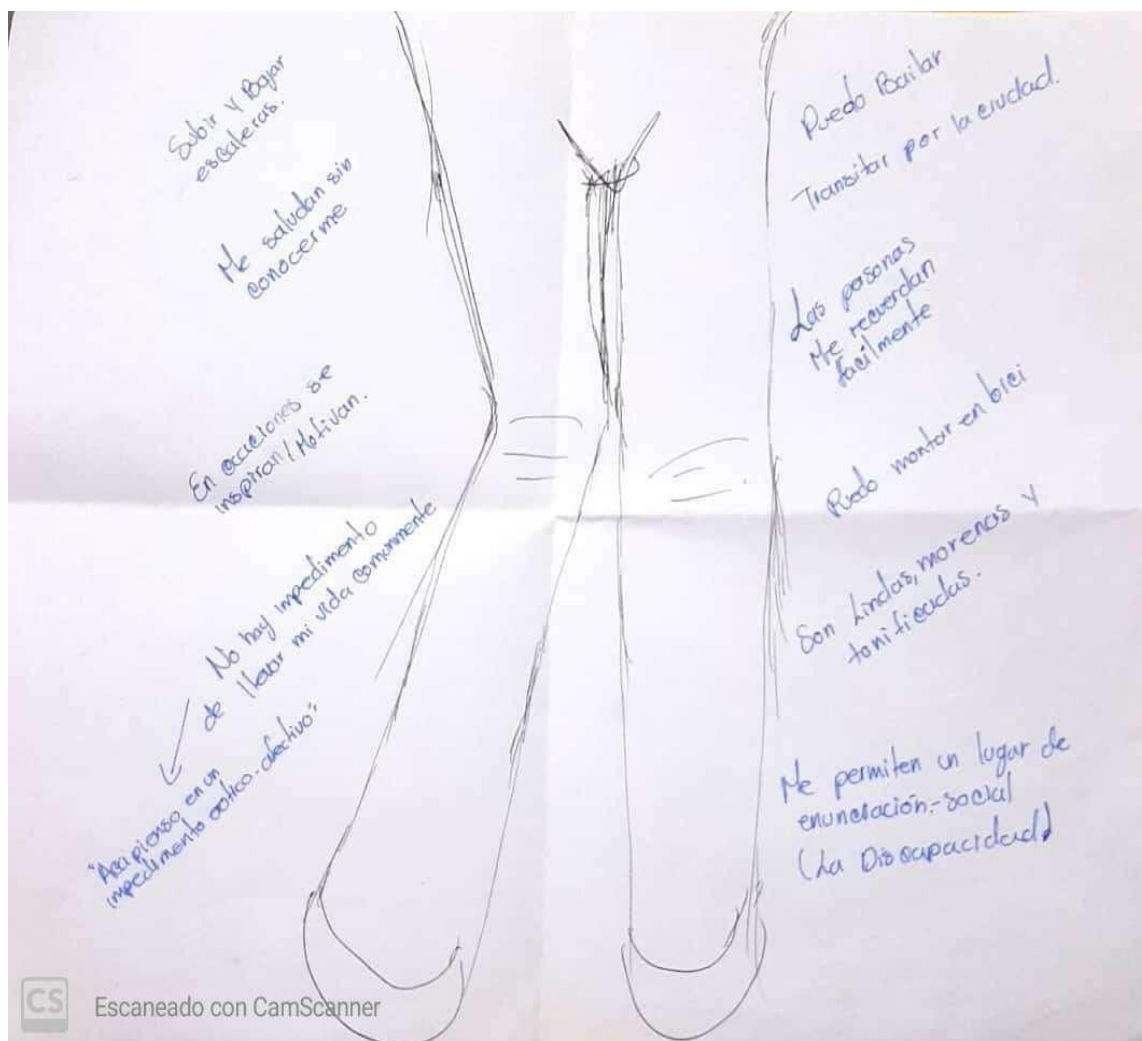 Subir Y Bajar
escaleras.
Me saludan sin
conocerme
En occaciones se
inspiran/Motivan.
No hay impedimento
de llevar mi vida comunmente
"Aca pienso en un
impedimento erótico-afectivo"
Puedo Bailar
Transitar por la ciudad.
Las personas
Me recuerdan
facilmente
Puedo montar en bici
Son Lindas, morenas y
tonificadas.
Me permiten un lugar de
enunciación-social
(La Discapacidad)
CS Escaneado con CamScanner